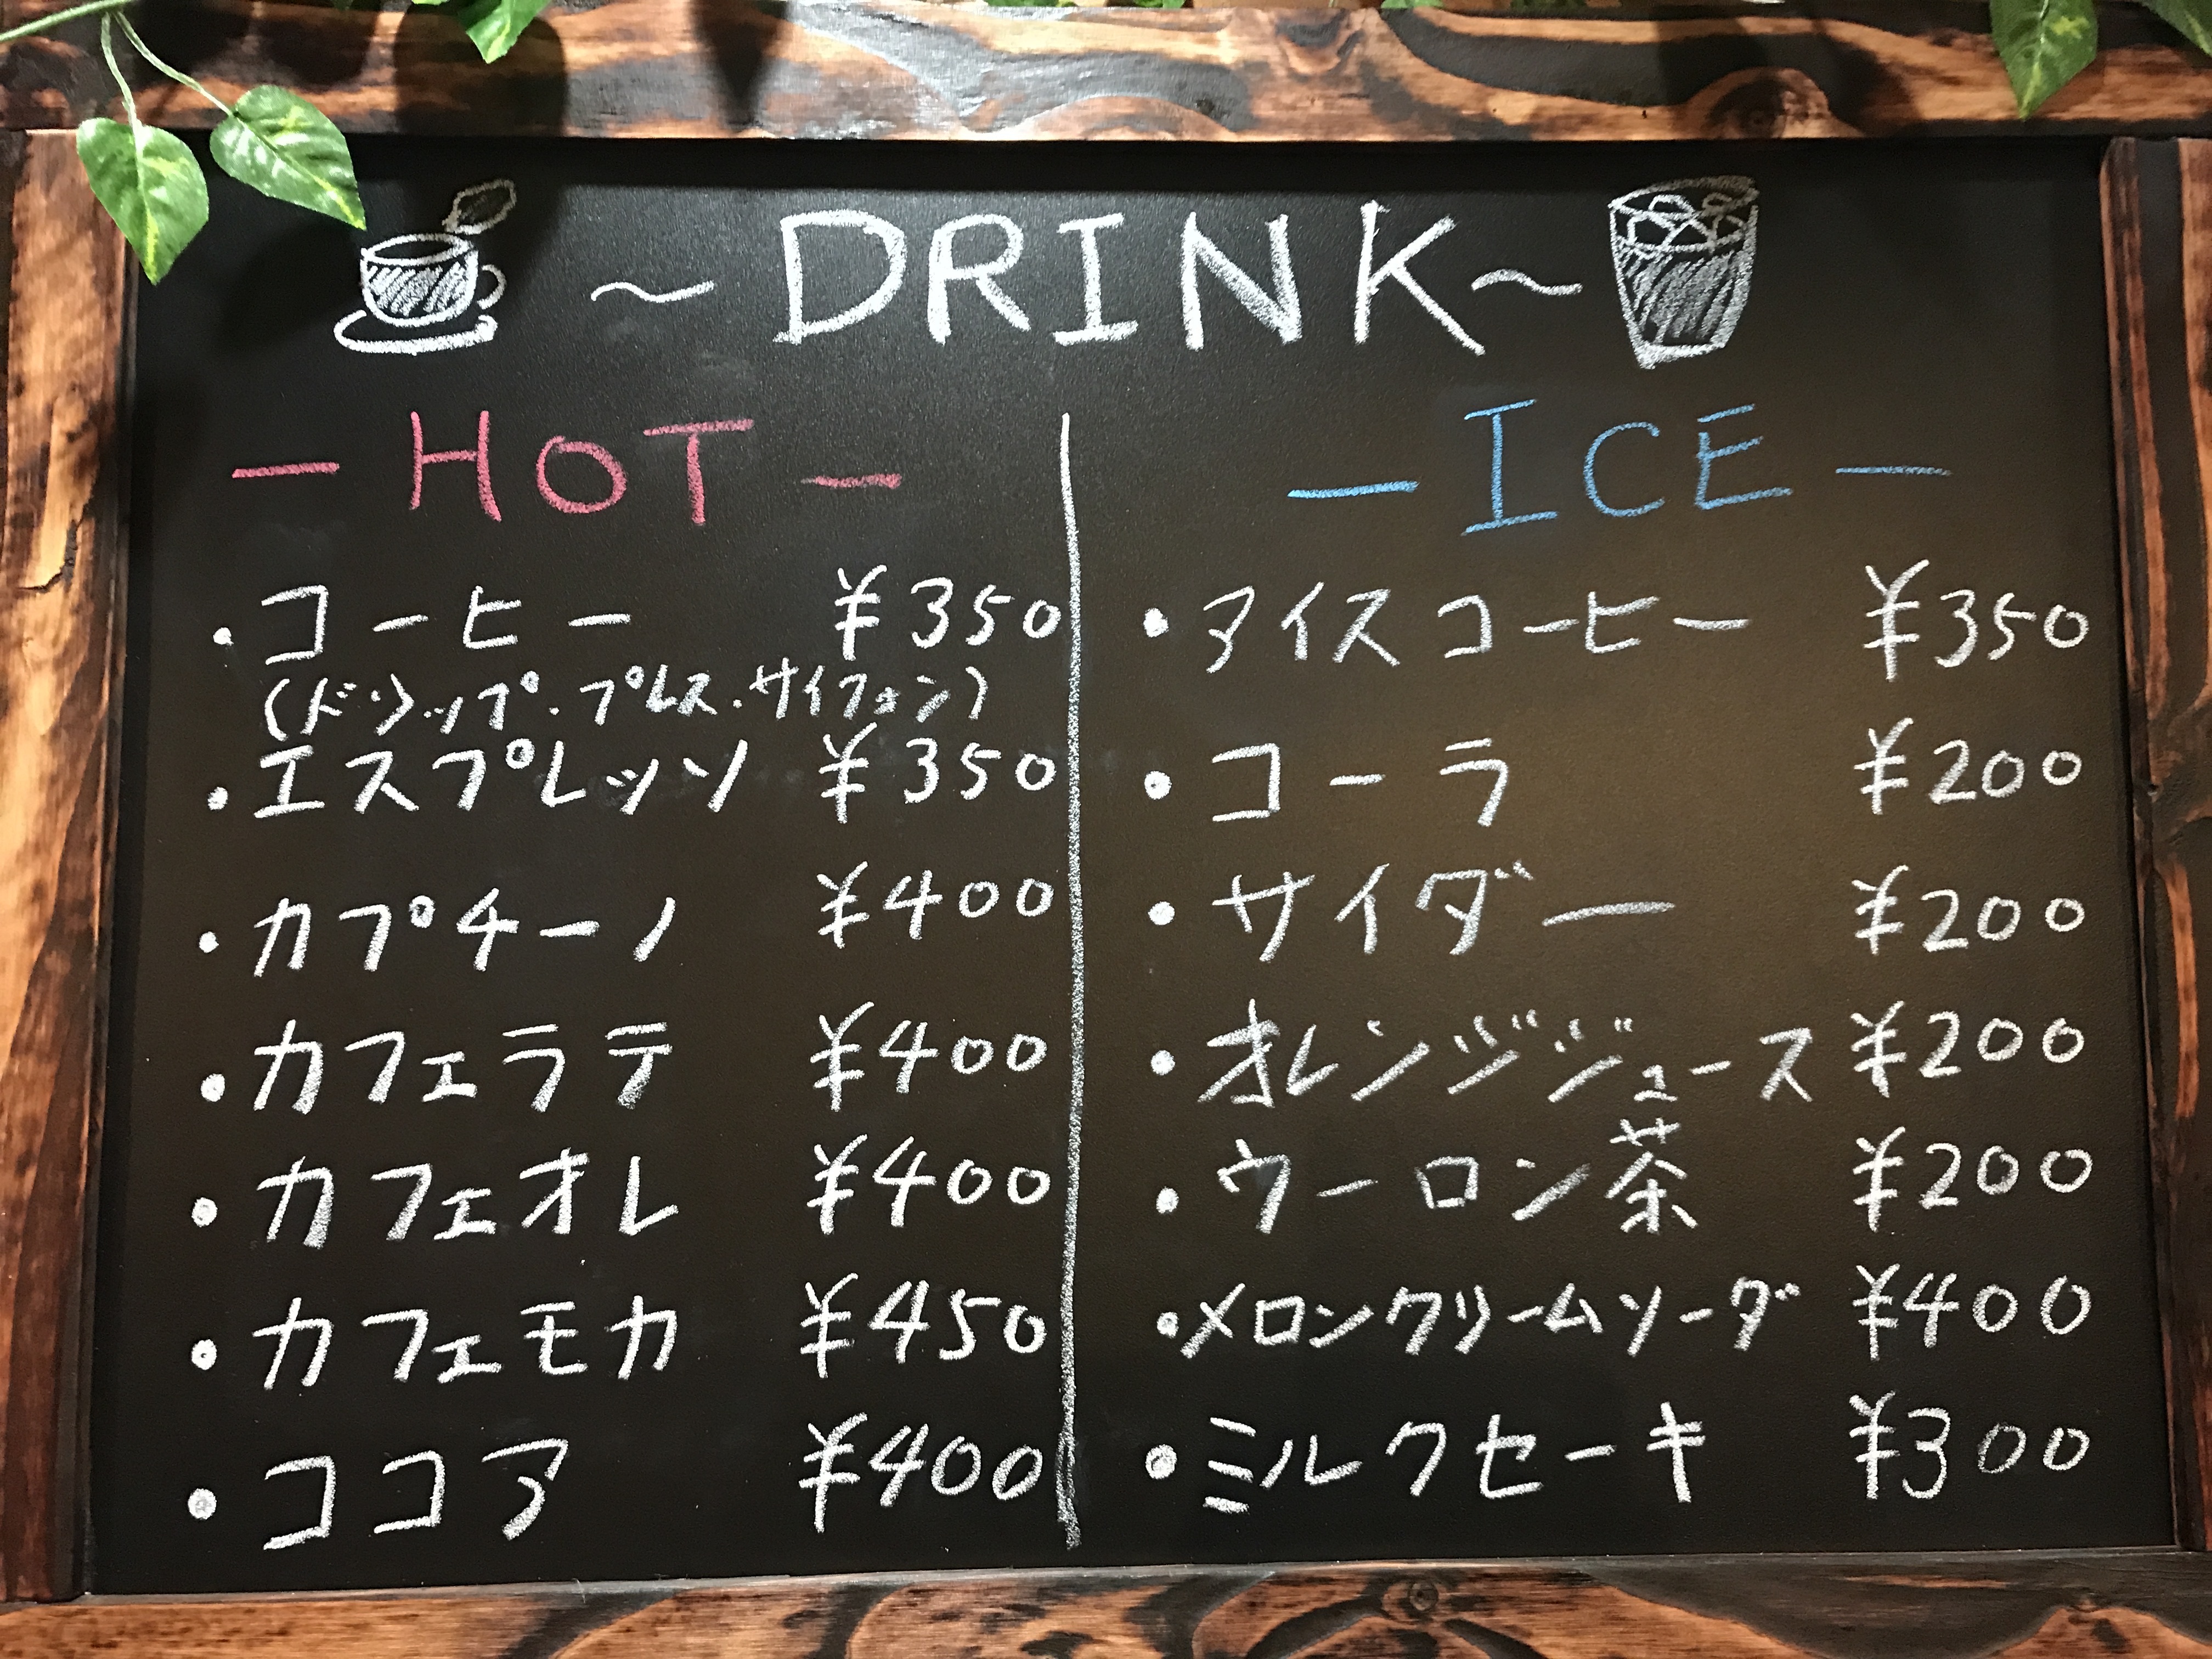 ～DRINK～
－HOT－
・コーヒー ¥350
(ドリップ・プレス・サイフォン)
・エスプレッソ ¥350
・カプチーノ ¥400
・カフェラテ ¥400
・カフェオレ ¥400
・カフェモカ ¥450
・ココア ¥400
－ICE－
・アイスコーヒー ¥350
・コーラ ¥200
・サイダー ¥200
・オレンジジュース ¥200
・ウーロン茶 ¥200
・メロンクリームソーダ ¥400
・ミルクセーキ ¥300